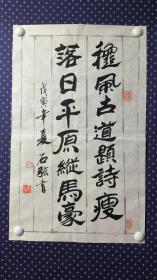 種風古道題詩瘦
落日平原縱馬豪
戊寅年夏石跃書